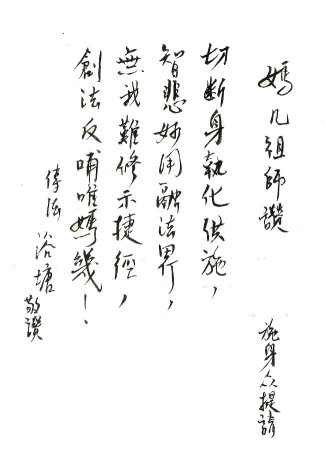 媽几祖師讚
施身众提請
切断身執化供施，
智悲妙用融法界，
無我難修示捷徑，
創法反哺唯媽幾！
傳法 浴塘敬讚